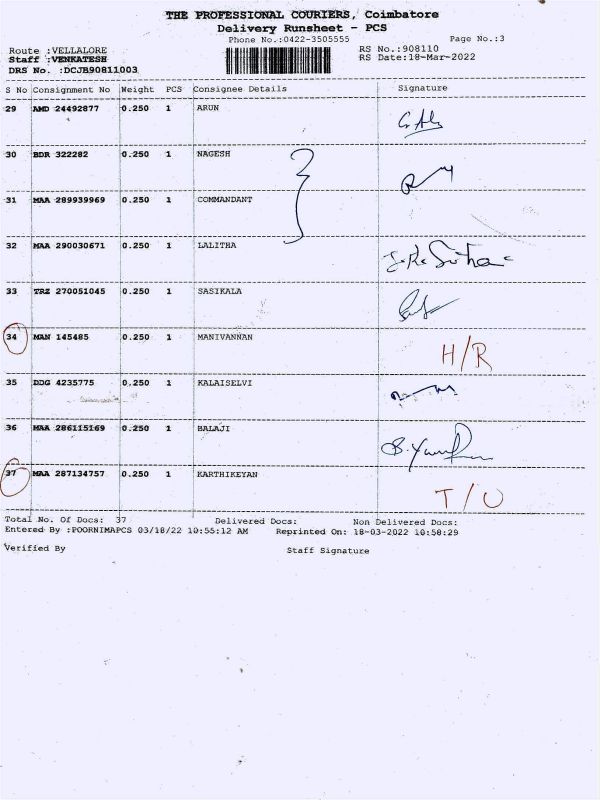 THE PROFESSIONAL COURIERS, Coimbatore
Delivery Runsheet - PCS
Phone No.:0422-3505555 Page No.:3
Route :VELLALORE RS No.:908110
Staff :VENKATESH RS Date:18-Mar-2022
DRS No. :DCJB90811003
S No Consignment No Weight PCS Consignee Details Signature
29 AMD 24492877 0.250 1 ARUN
30 BDR 322282 0.250 1 NAGESH
31 MAA 289939969 0.250 1 COMMANDANT
32 MAA 290030671 0.250 1 LALITHA
33 TRZ 270051045 0.250 1 SASIKALA
34 MAN 145485 0.250 1 MANIVANNAN H/R
35 DDG 4235775 0.250 1 KALAISELVI
36 MAA 286115169 0.250 1 BALAJI
37 MAA 287134757 0.250 1 KARTHIKEYAN T/O
Total No. Of Docs: 37 Delivered Docs: Non Delivered Docs:
Entered By :POORNIMAPCS 03/18/22 10:55:12 AM Reprinted On: 18-03-2022 10:58:29
Verified By Staff Signature